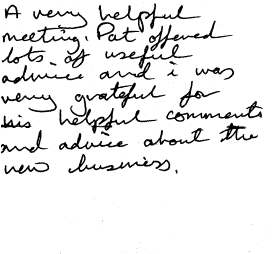 A very helpful
meeting. Pat offered
lots of useful
advice and i was
very grateful for
his helpful comments
and advice about the
new business.